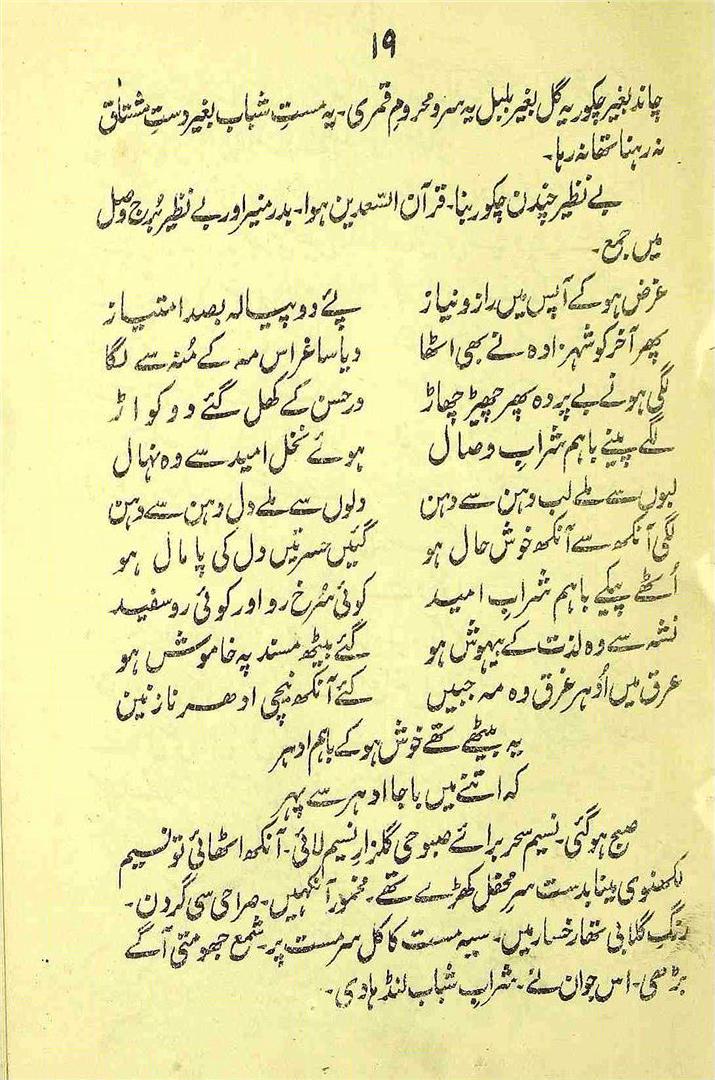 ۱۹
چاند بغیر چکور یہ گل بغیر بلبل یہ سرو محروم قمری۔ یہ مستِ شباب بغیر دستِ مشتاق
نہ رہنا تھا نہ رہا۔
بے نظیر چندن چکور بنا۔ قرآن السّعدین ہوا۔ بدر منیر اور بے نظیر بُرج وصل
میں جمع۔
غرض ہو کے آپس میں راز و نیاز پئے دو پیالہ بصد امتیاز
پھر آخر کو شہزادہ نے بھی اٹھا دیا ساغر اس مہ کے مُنہ سے لگا
لگی ہونے بے پردہ پھر چھیڑ چھاڑ در حسن کے کھل گئے دو کواڑ
لگے پینے باہم شرابِ وصال ہوئے نخل امید سے وہ نہال
لبوں سے ملے لب دہن سے دہن دلوں سے ملے دل دہن سے دہن
لگی آنکھ سے آنکھ خوش حال ہو گئیں حسرتیں دل کی پامال ہو
اُٹھے پیکے باہم شرابِ امید کوئی سُرخ رو اور کوئی رو سفید
نشہ سے وہ لذت کے بیہوش ہو گئے بیٹھ مسند پہ خاموش ہو
عرق میں اُدہر غرق وہ مہ جبیں کئے آنکھ نیچی ادھر نازنین
یہ بیٹھے تھے خوش ہو کے باہم ادہر
کہ اتنے میں باجا ادہر سے پہر
صبح ہو گئی۔ نسیم سحر برائے صبوحی گلزار نسیم لائی۔ آنکھ اٹھائی تو نسیم
لکھنوی مینا بدست سرِ محفل کھڑے تھے۔ مخمور آنکہیں۔ صراحی سی گردن۔
رنگِ گلابی تھا رخسار میں۔ سیہ مست کا کل سر مست پر۔ شمع جھومتی آگے
بڑھی۔ اس جوان نے۔ شرابِ شباب لنڈہا دی۔